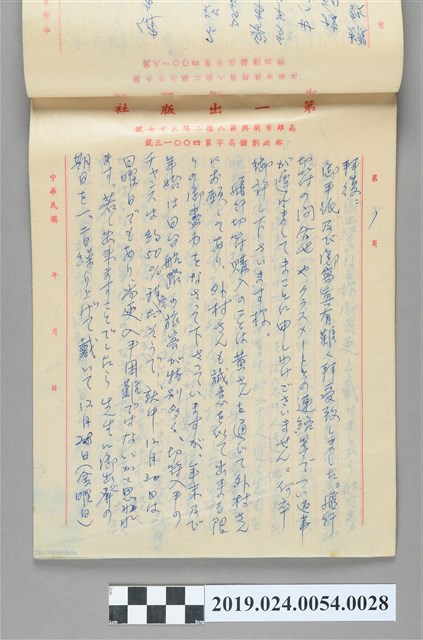 第一出版社
高雄市新興區八德二路三十七號
郵政劃撥高字第四〇〇一三號
第 1 頁
拝復:
御手紙及び御写真有難く拝受致しました。飛行
切符の問合せやクラスメートとの連絡等でつい返事
が遅れましてまことに申しわけございません。何卒
御許し下さいます様。
飛行切符購入のことは黄さんを通じて外村さん
にお願してあり、外村さんも誠意を以て出来る限
りの御尽力をなさって下さっていますが、年末及び
年始は日台航路の旅客が特別多く、切符入手の
チャンスは約50%程だそうで、就中12月30日は
日曜日でもあり、尚更入手困難ではないかと思われ
ます。若し出来ますことでしたら先生の御出発の
期日を一、二日繰り上げて戴いて12月28日(金曜日)
中華民國 年 月 日
2019.024.0054.0028